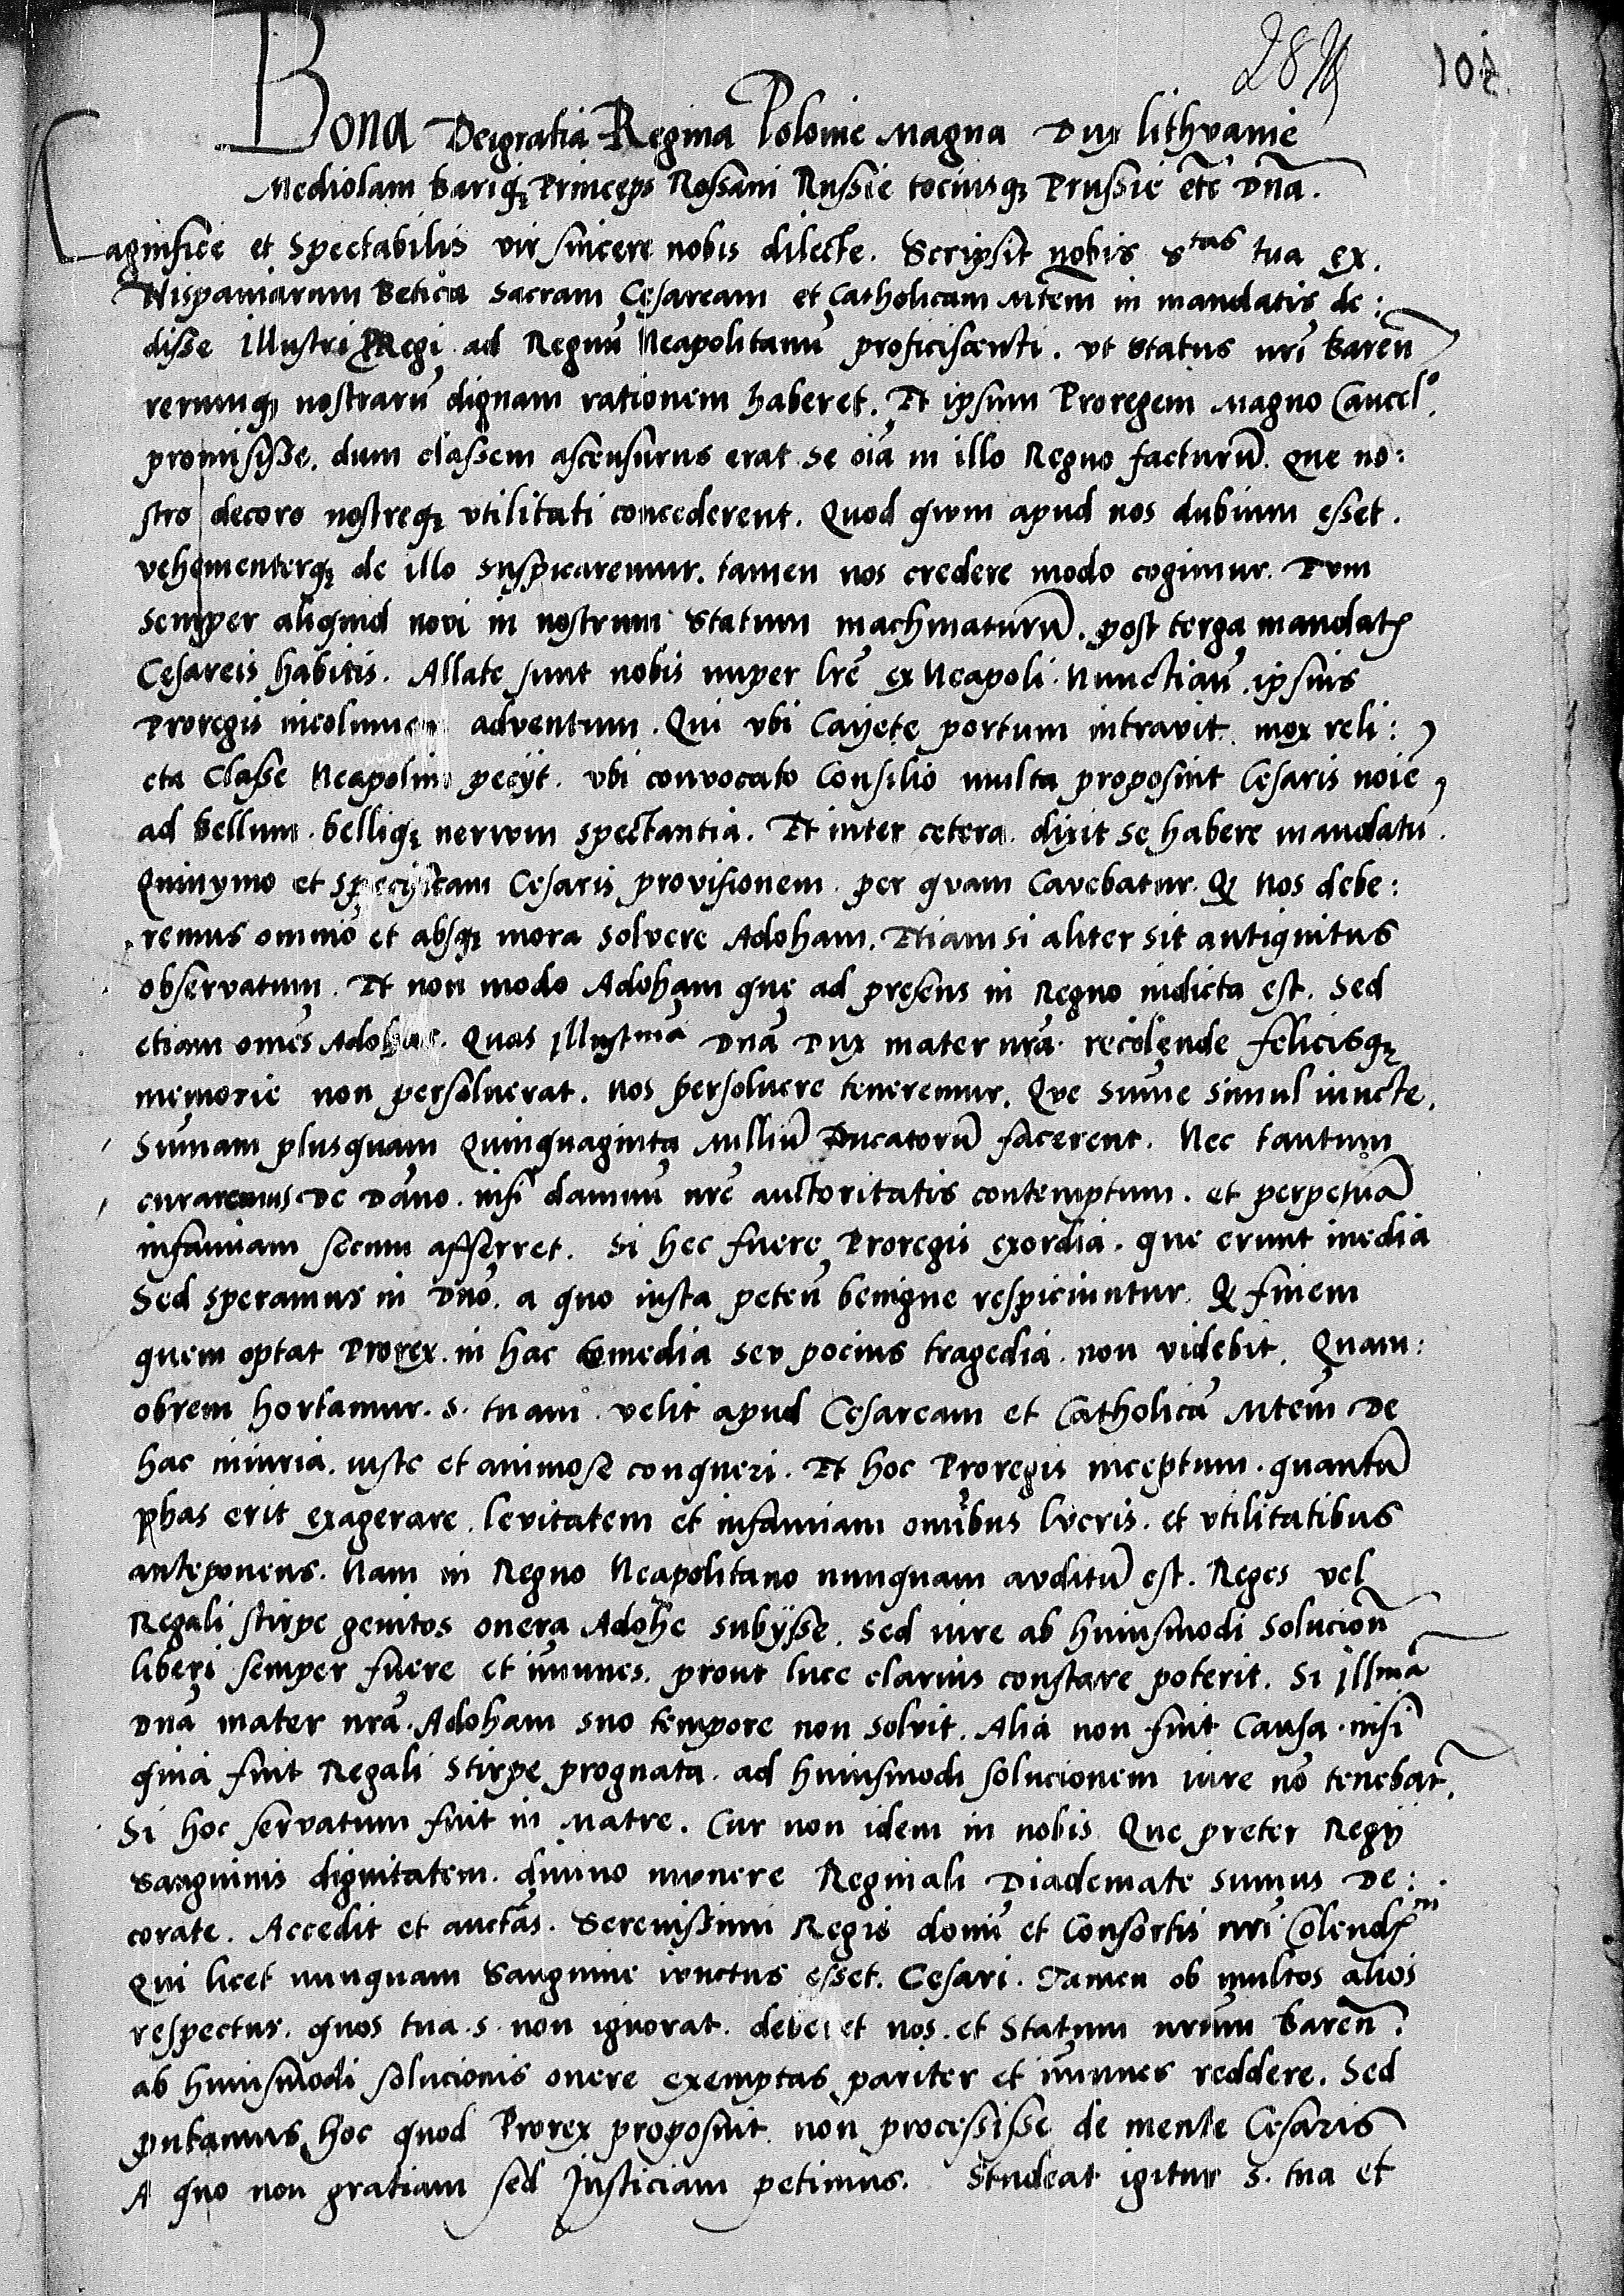 284 102.
Bona Dei gratia Regina Polonie Magna Dux lithvanie
Mediolani Bariq₃ Princeps Rossani Russie tociusq₃ Prussie etc̄ Dn̄a.
Magnifice et spectabilis vir sincere nobis dilecte. Scripsit nobis S^tas tua ex.
Hispaniarum Betica Sacram Cesaream et Catholicam Mtēm in mandatis de:
disse illustri PRegi ad Regnū Neapolitanū proficiscenti. vt Status nr̄i Barēn
rerumq₃ nostrarū dignam rationem haberet. Et ipsum Proregem Magno Cancel^o.
promisisse. dum classem ascensurus erat se oīa in illo Regno facturū. que no:
stro decoro nostreq₃ vtilitati concederent. Quod qvom apud nos dubium esset.
vehementerq₃ de illo suspicaremur. tamen nos credere modo cogimur. Dvm
semper aliquid novi in nostrum Statum machinaturū. post terga mandatꝭ
Cesareis habitis. Allate sunt nobis nuper lr̄e ex Neapoli Nunctiān̄. ipsius
Proregis incolumem adventum. Qui vbi Cayete portum intravit. mox reli:
cta Classe Neapolim peciit. vbi convocato Consilio multa proposuit Cesaris noīe
ad bellum. belliq₃ nervvm spectantia. Et inter cetera dixit se habere mandatū.
Quinymo et specificam Cesaris provisionem. per quam Cavebatur. Q₃ nos debe:
remus omnīo et absq₃ mora solvere Adoham. Etiam si aliter sit antiquitus
observatum. Et non modo Adoham que ad presens in Regno indicta est. Sed
etiam omēs Adohas. Quas Illust^ma Dn̄a Dux mater nr̄a recolende felicisq₃
memorie non persoluerat. nos persoluere teneremur. Qve sum̄e simul iuncte.
Sum̄am plusquam Quinquaginta Milliū Ducatorū facerent. Nec tantum
curaremus de Dām̄no. nisi damnū nr̄e auctoritatis contemptum. et perpetuā
infamiam secum afferret. Si hec fuere Proregis exordia. que erunt media
Sed speramus in Dn̄o. a quo iusta peteñ benigne respiciuntur. Q₃ finem
quem optat Prorex in hac Comedia sev pocius tragedia. non videbit. Quam:
obrem hortamur. S. tuam. velit apud Cesaream et Catholicā Mtēm de
hac iniuria. iuste et animose conqueri. Et hoc Proregis inceptum. quantū
phas erit exagerare. levitatem et infamiam omībus lvcris. et vtilitatibus
anteponens. Nam in Regno Neapolitano nunquam avditū est. Reges vel
Regali stirpe genitos onera Adohe subiisse. Sed iure ab huiusmodi solucioñ
liberi semper fuere et im̄unes. prout luce clarius constare poterit. Si Ill^ma
Dn̄a mater nr̄a. Adoham suo tempore non solvit. Alia non fuit Causa. nisi
quia fuit Regali Stirpe prognata. ad huiusmodi solucionem iure nō tenebat̄.
Si hoc servatum fuit in Matre. Cur non idem in nobis Que preter Regij
Sanguinis dignitatem. divino munere Reginali Diademate sumus de:
corate. Accedit et auctās. Serenissimi Regis domī et Consortis nr̄i Colendꝭ^mi
Qui licet nunquam Sanguine ivnctus esset. Cesari. Tamen ob multos alios
respectus. quos tua. S. non ignorat. deberet nos. et Statum nr̄um Barēn.
ab huiusmodi solucionis onere exemptas pariter et im̄unes reddere. Sed
putamus. hoc quod Prorex proposuit non processisse de mente Cesaris
A quo non gratiam sed Justiciam petimus. Studeat igitur S. tua et